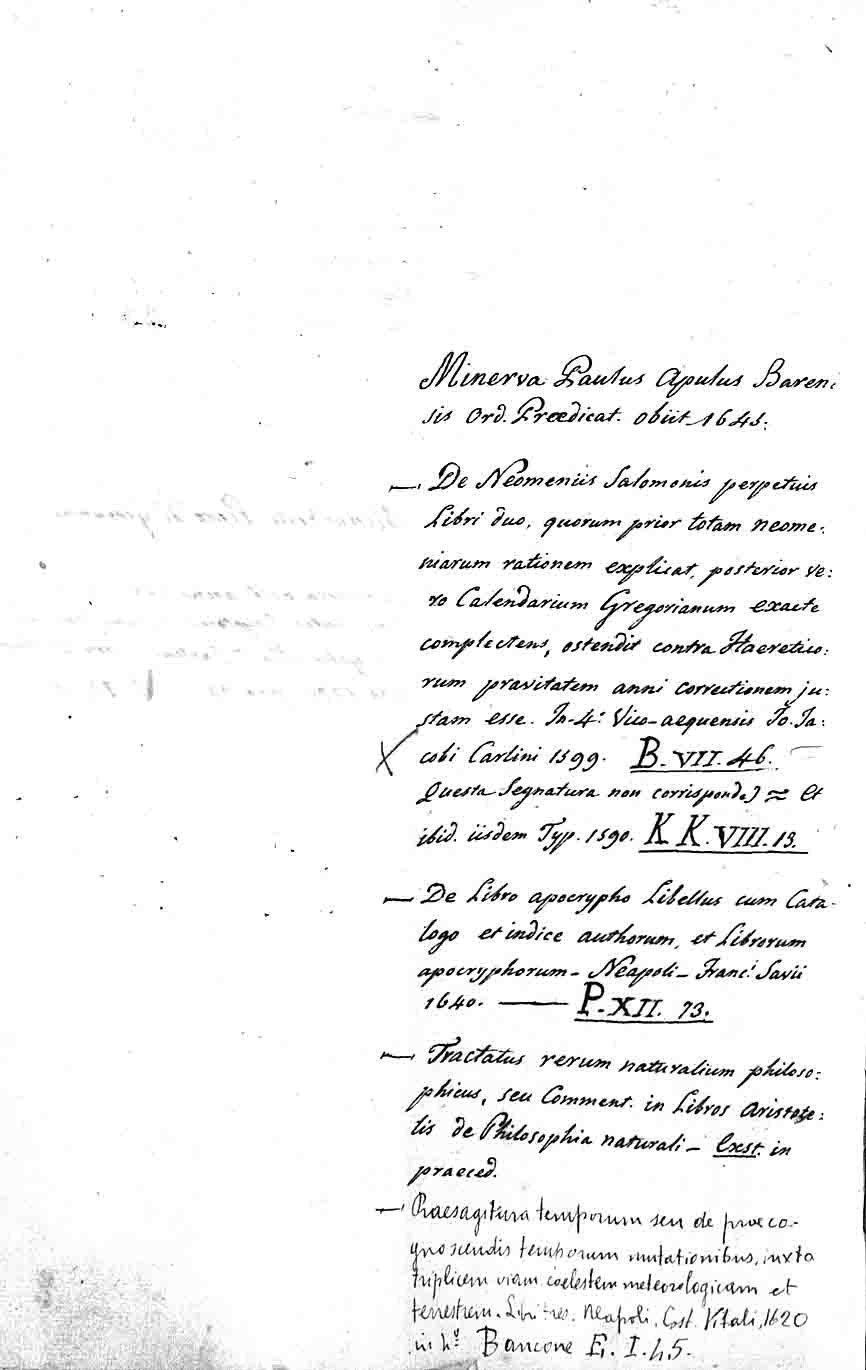 Minerva Paulus Apulus Baren:
sis Ord. Prædicat. obiit 1645:
— De Neomeniis Salomonis perpetuis
Libri duo, quorum prior totam neome:
niarum rationem explicat, posterior ve:
ro Calendarium Gregorianum exacte
complectens, ostendit contra Haeretico:
rum pravitatem anni correctionem ju:
stam esse. In-4º Vico-aequensis Jo. Ja:
cobi Carlini 1599. B. VII. 46.
Questa Segnatura non corrisponde) = Et
ibid. iisdem Typ. 1590. KK. VIII. 13.
— De Libro apocrypho Libellus cum Cata-
logo et indice authorum, et Librorum
apocryphorum - Neapoli - Franc.i Savii
1640. — P. XII. 73.
— Tractatus rerum naturalium philoso:
phicus, seu Comment. in Libros Aristote:
lis de Philosophia naturali - Exst. in
praeced.
— Praesagitura temporum seu de præco-
gnoscendis temporum mutationibus, iuxta
triplicem viam coelestem meteorologicam et
terrestrem. Libri tres. Neapoli, Cost. Vitali, 1620
in 4º Bancone E. I. 45.